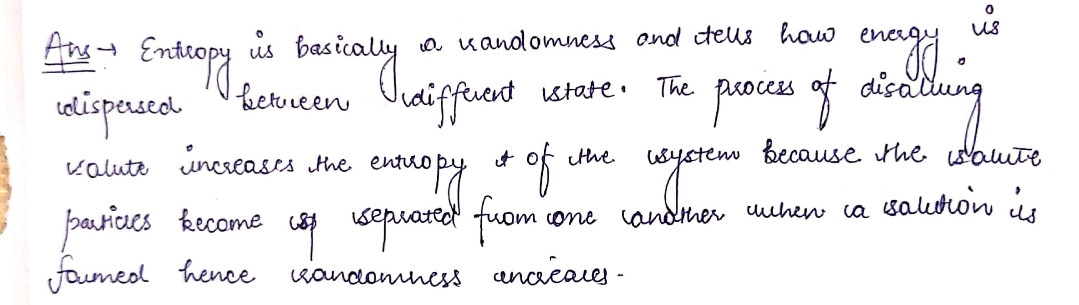 Ans → Entropy is basically a randomness and tells how energy is
dispersed between different state. The process of disolving
solute increases the entropy of the system because the solute
particles become seprated from one another when a solution is
formed hence randomness increases.